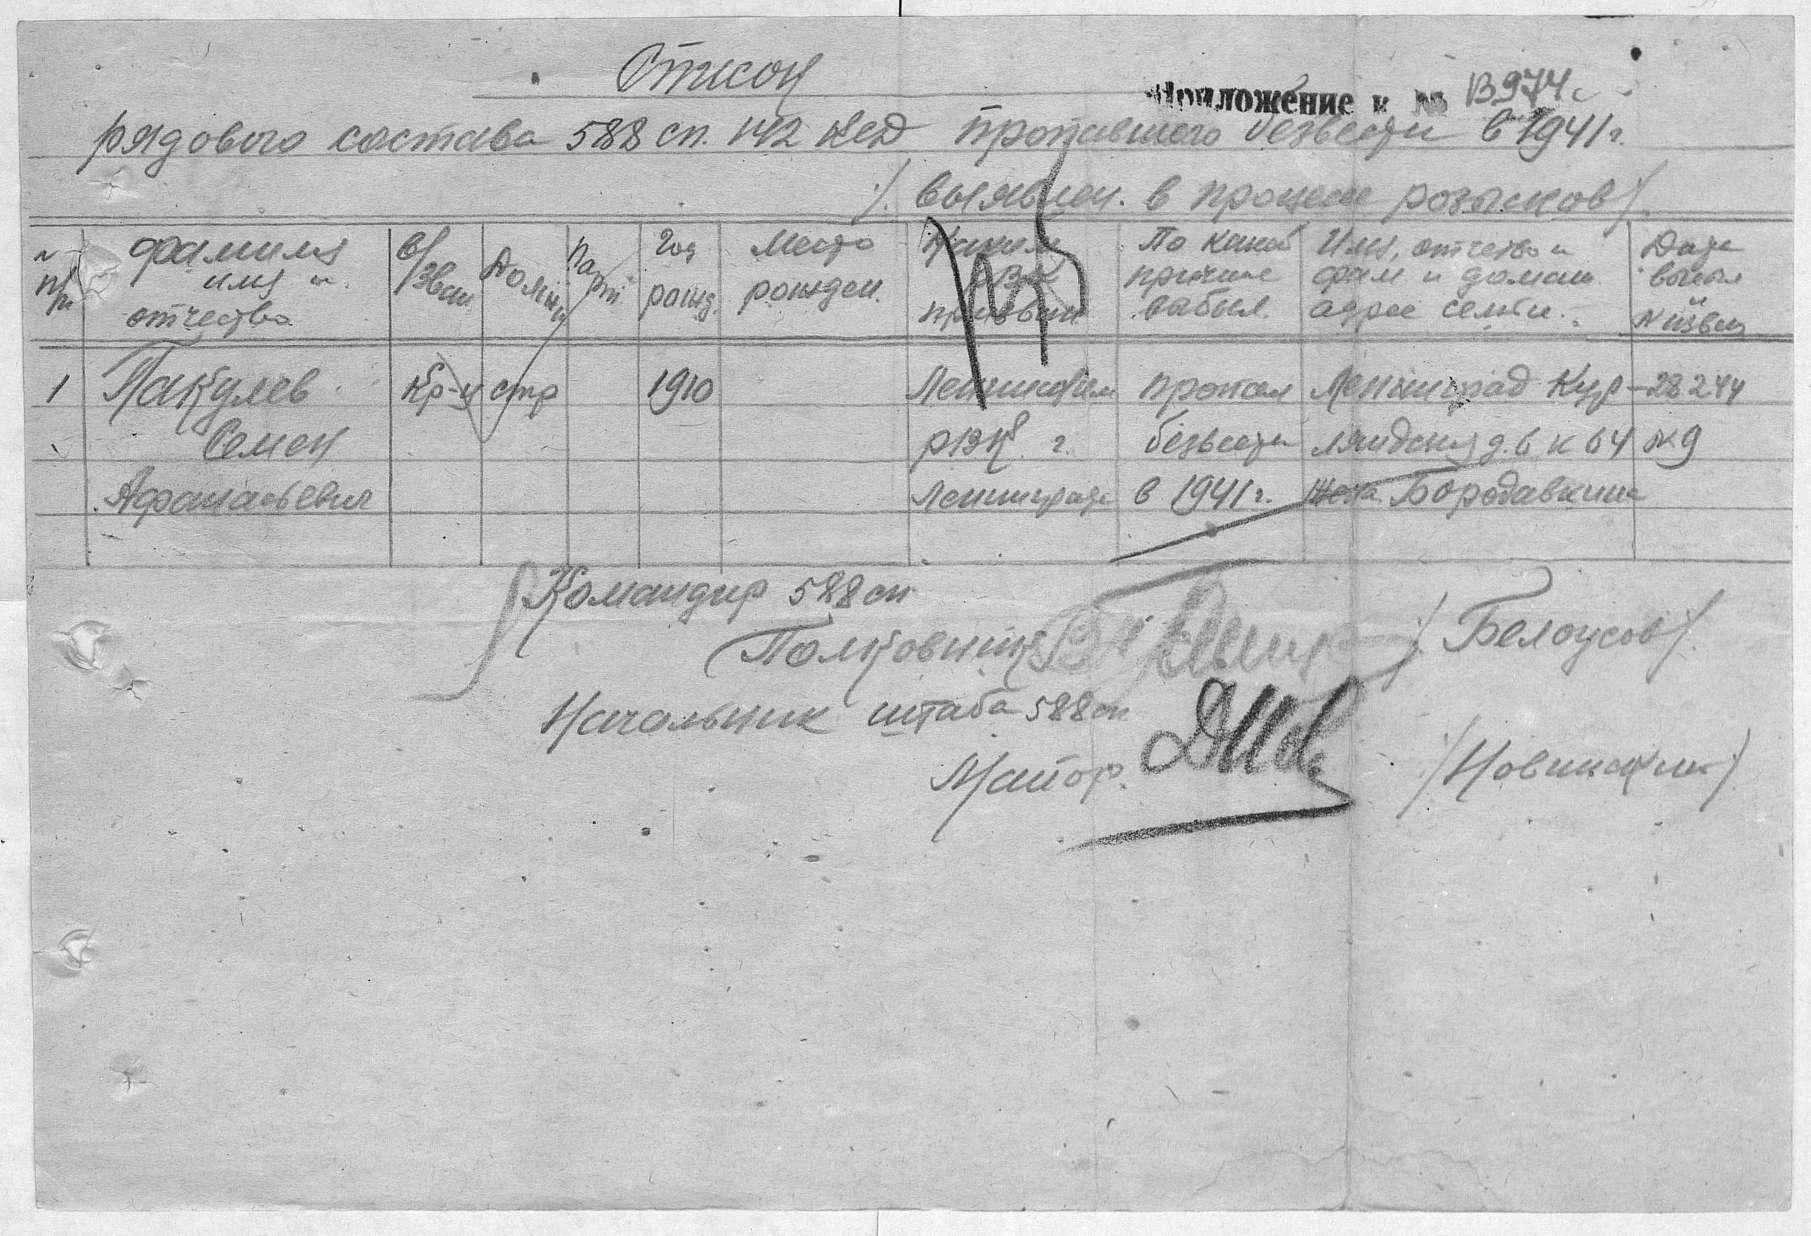 Список
Приложение к № В974с
рядового состава 588 сп. 142 КСД пропавшего безвести в 1941 г.
/ выявлен. в процессе розысков /
№ п/п
фамилия имя и отчество
в/зван
Должн
Парт
Год рожд.
Место рожден.
Каким РВК призван
По какой причине выбыл.
Имя, отчество и фам и домаш. адрес семьи.
Дата высыл № извещ
1 Пакулев кр-ц стр 1910 Ленинским пропал Ленинград Кур- 28 2 44
Семен РВК г. безвести ляндская д. 6 к 64 №9
Афанасьевич Ленинграда в 1941 г. Жена Бородавкина
Командир 588 сп
Полковник / Белоусов /
Начальник штаба 588 сп
Майор. / Новинский /